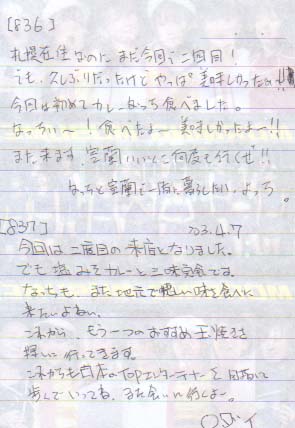 [836]
札幌在住なのに、まだ今回で二回目!
でも、久しぶりだったけど やっぱ 美味しかったぁ!!
今回は初めてカレーなっち食べました。
なっちぃ~! 食べたよ~ 美味しかったよ~!!
また来ます。室蘭いいトこ何度も行くぜ!!
なっちと室蘭で一緒に暮らしたい よっち。
[837] '03.4.7
今回は二度目の来店となりました。
でも 塩 みそ カレーと三味完食です。
なっちも、また地元で懐しい味を食べに
来たいよねぃ。
これから、もう一つのおすすめ 玉焼きを
買いに行ってきます
これからも日本のTopエンターテイナーを目指して
歩んでいってね。また会いに行くよー。